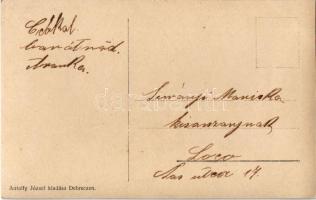 Csókkal
barátnőd
Aranka.
Surányi Mariska
kisasszonynak
Loco
Vas utca 14.
Antalfy József kiadása Debreczen.